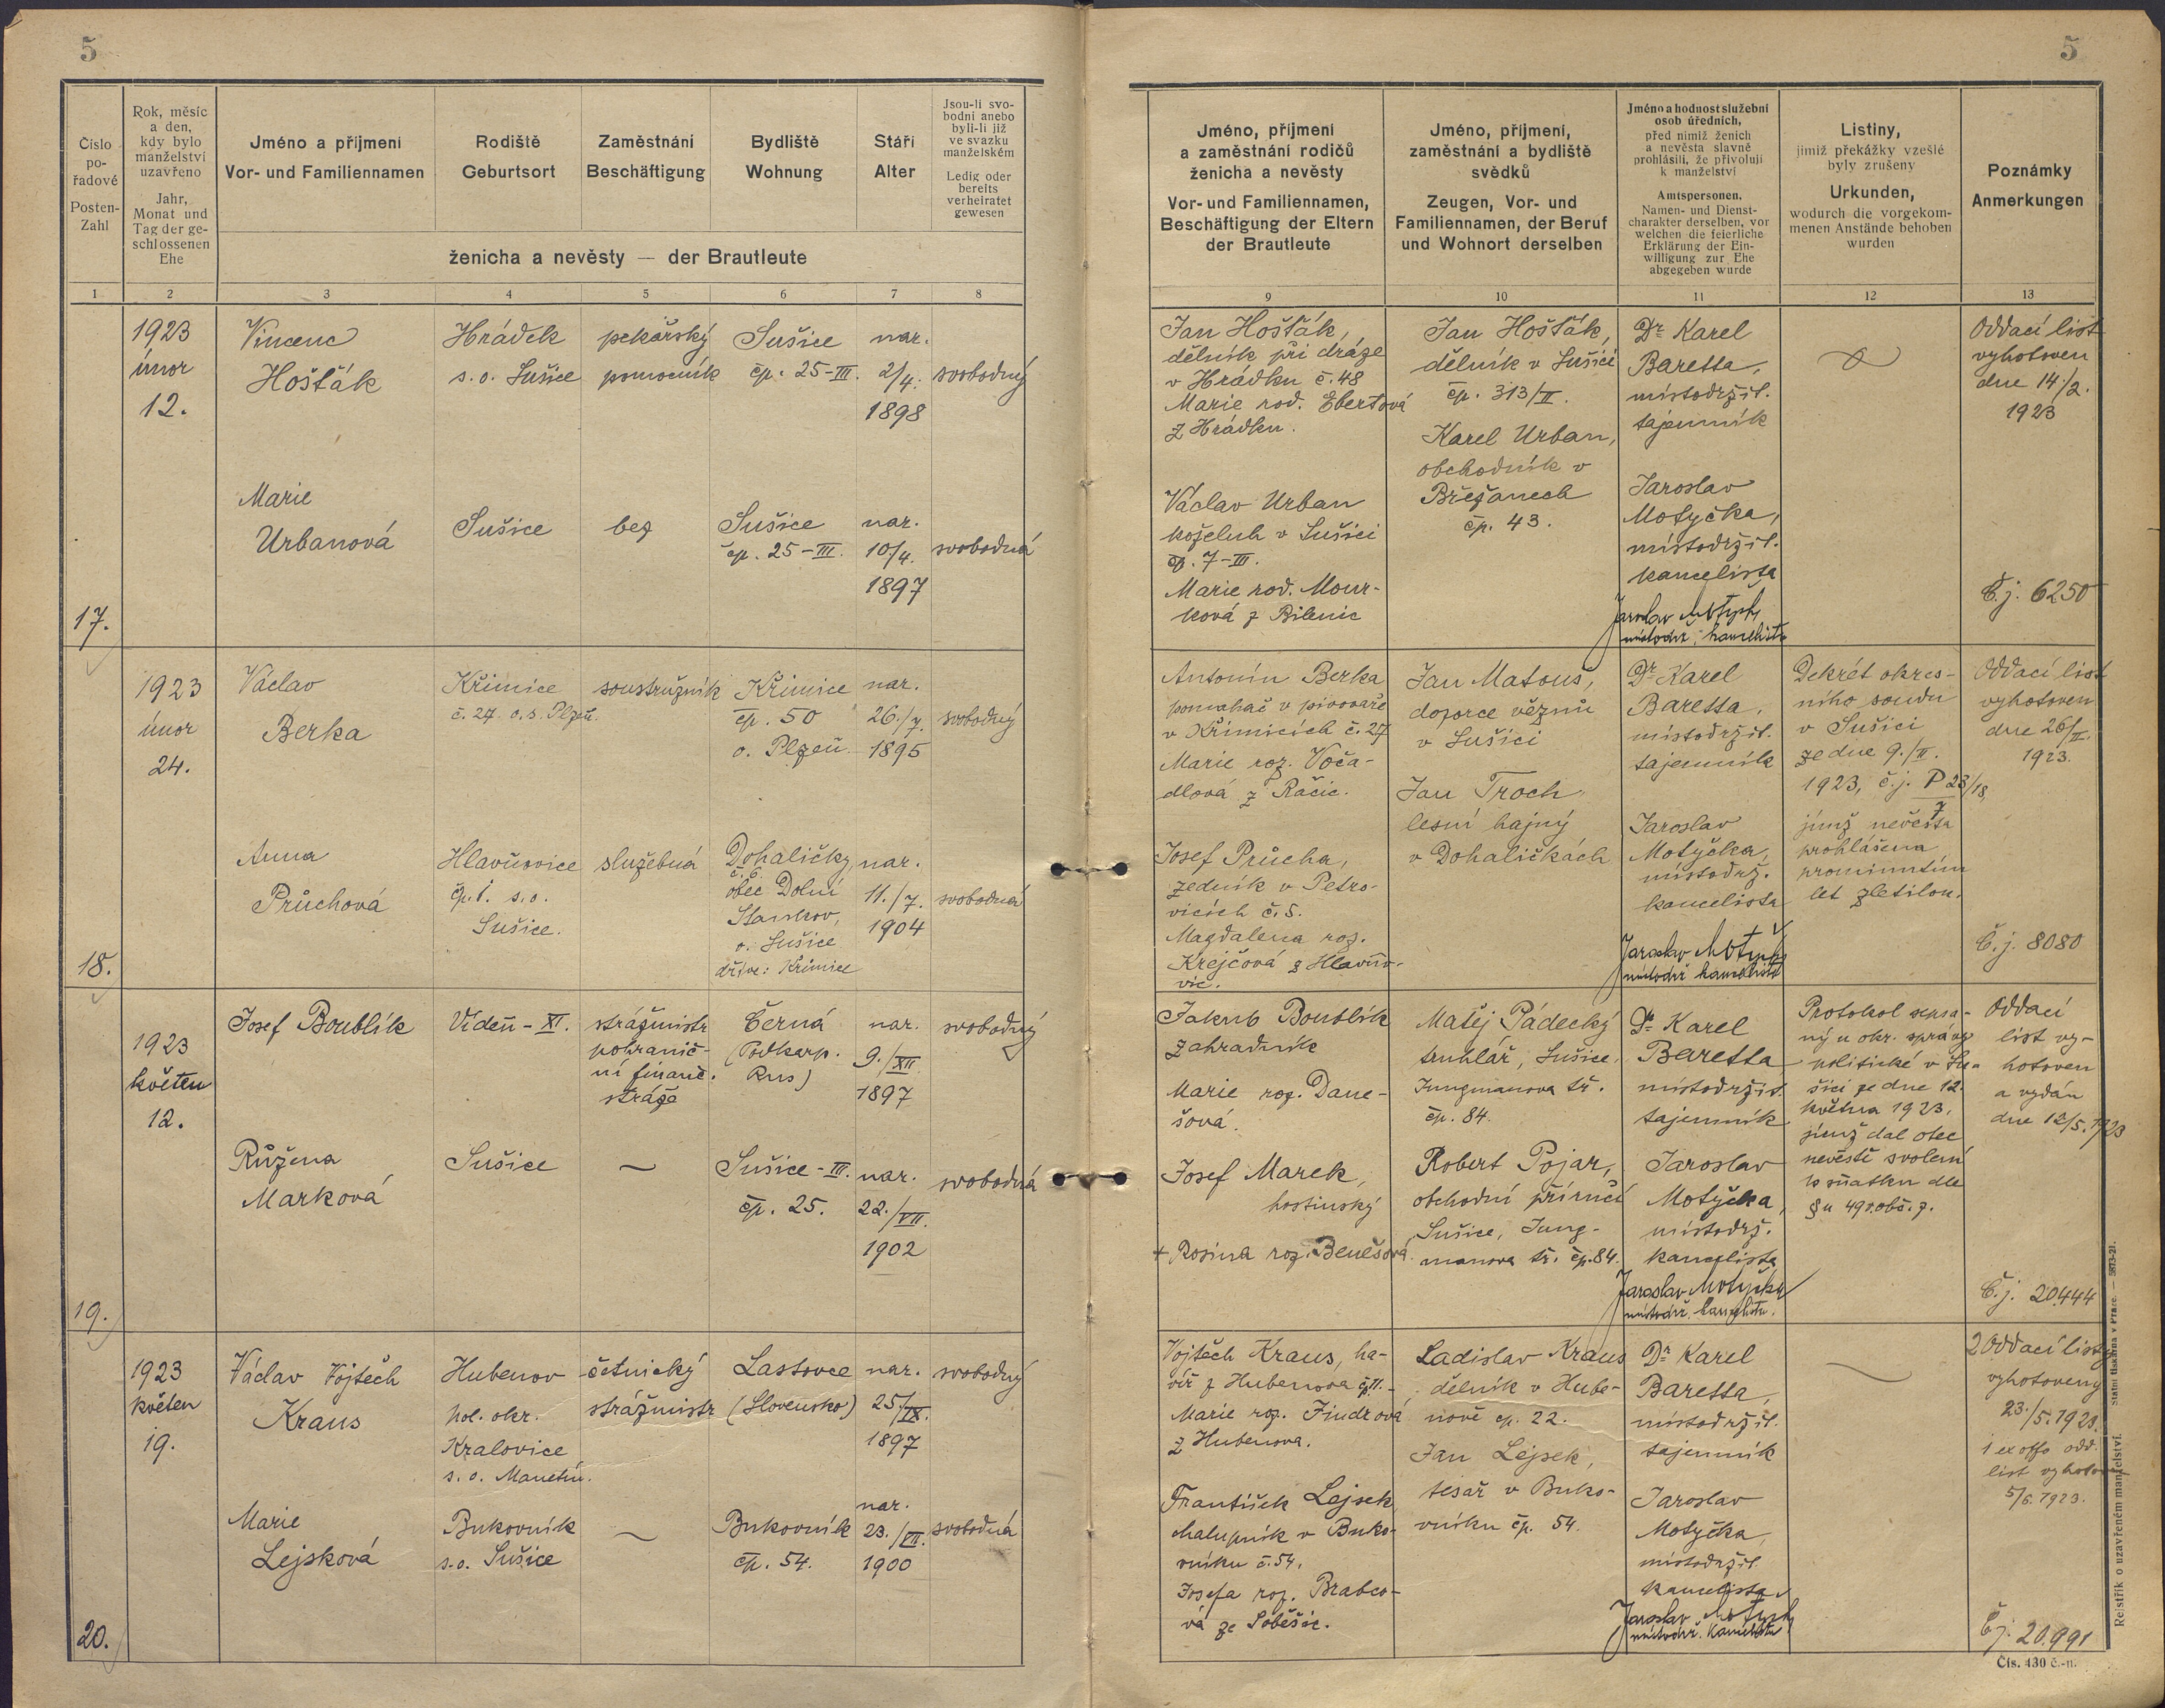 5
5
Číslo pořadové
Posten-Zahl
Rok, měsíc
a den,
kdy bylo
manželství
uzavřeno
Jahr,
Monat und
Tag der ge-
schlossenen
Ehe
Jméno a příjmení
Vor- und Familiennamen
Rodiště
Geburtsort
Zaměstnání
Beschäftigung
Bydliště
Wohnung
Stáří
Alter
Jsou-li svo-
bodni anebo
byli-li již
ve svazku
manželském
Ledig oder
bereits
verheiratet
gewesen
ženicha a nevěsty — der Brautleute
Jméno, příjmení
a zaměstnání rodičů
ženicha a nevěsty
Vor- und Familiennamen,
Beschäftigung der Eltern
der Brautleute
Jméno, příjmení,
zaměstnání a bydliště
svědků
Zeugen, Vor- und
Familiennamen, der Beruf
und Wohnort derselben
Jméno a hodnost služební
osob úředních,
před nimiž ženich
a nevěsta slavně
prohlásili, že přivolují
k manželství
Amtspersonen,
Namen- und Dienst-
charakter derselben, vor
welchen die feierliche
Erklärung der Ein-
willigung zur Ehe
abgegeben wurde
Listiny,
jimiž překážky vzešlé
byly zrušeny
Urkunden,
wodurch die vorgekom-
menen Anstände behoben
wurden
Poznámky
Anmerkungen
1 2 3 4 5 6 7 8 9 10 11 12 13
17.
1923
únor
12.
Vincenc
Hošťák
Hrádek
s. o. Sušice
pekařský
pomocník
Sušice
čp. 25-III.
nar.
2/4.
1898
svobodný
Marie
Urbanová
Sušice
bez
Sušice
čp. 25-III.
nar.
10/4.
1897
svobodná
Jan Hošťák,
dělník při dráze
v Hrádku č. 48
Marie rod. Ebertová
z Hrádku.
Václav Urban
koželuh v Sušici
čp. 7-III.
Marie rod. Mour-
ková z Bílenic
Jan Hošťák,
dělník v Sušici
čp. 313/II.
Karel Urban,
obchodník v
Břežanech
čp. 43.
Dr Karel
Baretta,
místodržit.
tajemník
Jaroslav
Motyčka,
místodržit.
kancelista
Jaroslav Motyčka
místodrž. kancelista
Oddací list
vyhotoven
dne 14/2.
1923
Č.j. 6250
18.
1923
únor
24.
Václav
Berka
Křimice
č. 27 o. s. Plzeň.
soustružník
Křimice
čp. 50
o. Plzeň
nar.
26./7.
1895
svobodný
Anna
Průchová
Hlavňovice
čp. 1. s. o.
Sušice.
služebná
Dohaličky
č. 6.
obec Dolní
Staňkov,
o. Sušice
dříve: Křimice
nar.
11./7.
1904
svobodná
Antonín Berka
pomahač v pivovaře
v Křimicích č. 27
Marie roz. Voča-
dlová z Račic.
Josef Průcha,
zedník v Petro-
vicích č. 5.
Magdalena roz.
Krejčová z Hlavňo-
vic.
Jan Matouš,
dozorce věznů
v Sušici
Jan Troch
lesní hajný
v Dohaličkách
Dr Karel
Baretta,
místodržit.
tajemník
Jaroslav
Motyčka,
místodrž.
kancelista
Jaroslav Motyčka
místodrž. kancelista
Dekrét okres-
ního soudu
v Sušici
ze dne 9./II.
1923, č.j. P 28/18
7
jímž nevěsta
prohlášena
prominutím
let zletilou.
Oddací list
vyhotoven
dne 26/II.
1923.
Č.j. 8080
19.
1923
květen
12.
Josef Boublík
Vídeň - XI.
strážmistr
pohranič-
ní finanč.
stráže
Černá
(Podkarp.
Rus)
nar.
9./XII.
1897
svobodný
Růžena
Marková
Sušice
Sušice - III.
čp. 25.
nar.
22./VII.
1902
svobodná
Jakub Boublík
zahradník
Marie roz. Dane-
šová.
Josef Marek,
hostinský
+ Rosina roz. Benešová.
Matěj Pádecký
truhlář, Sušice,
Jungmanova tř.
čp. 84.
Robert Pojar,
obchodní příručí
Sušice, Jung-
manova tř. čp. 84.
Dr Karel
Baretta
místodržit.
tajemník
Jaroslav
Motyčka,
místodrž.
kancelista
Jaroslav Motyčka
místodrž. kancelista.
Protokol sepsa-
ný u okr. správy
politické v Su-
šici ze dne 12.
května 1923,
jímž dal otec
nevěstě svolení
k sňatku dle
§u 49 obč. z.
Oddací
list vy-
hotoven
a vydán
dne 12/5. 1923
Č.j. 20444
20.
1923
květen
19.
Václav Vojtěch
Kraus
Hubenov
pol. okr.
Kralovice
s. o. Manetín.
četnický
strážmistr
Lastovce
(Slovensko)
nar.
25/IX.
1897
svobodný
Marie
Lejsková
Bukovník
s. o. Sušice
Bukovník
čp. 54.
nar.
23./VII.
1900
svobodná
Vojtěch Kraus, ha-
víř z Hubenova č. 11.-
Marie roz. Jindrová
z Hubenova.
František Lejsek
chalupník v Buko-
vníku č. 54.
Josefa roz. Brabco-
vá ze Soběšic.
Ladislav Kraus
dělník v Hube-
nově čp. 22.
Jan Lejsek,
tesař v Buko-
vníku čp. 54.
Dr Karel
Baretta,
místodržit.
tajemník
Jaroslav
Motyčka,
místodržit.
kancelista
Jaroslav Motyčka
místodrž. kancelista
2 Oddací listy
vyhotoveny
23./5. 1923.
1 ex offo odd.
list vyhotov
5/6. 1923.
Č.j. 20.991
Čís. 430 č.-n.
Rejstřík o uzavřeném manželství. Státní tiskárna v Praze. — 5873-21.